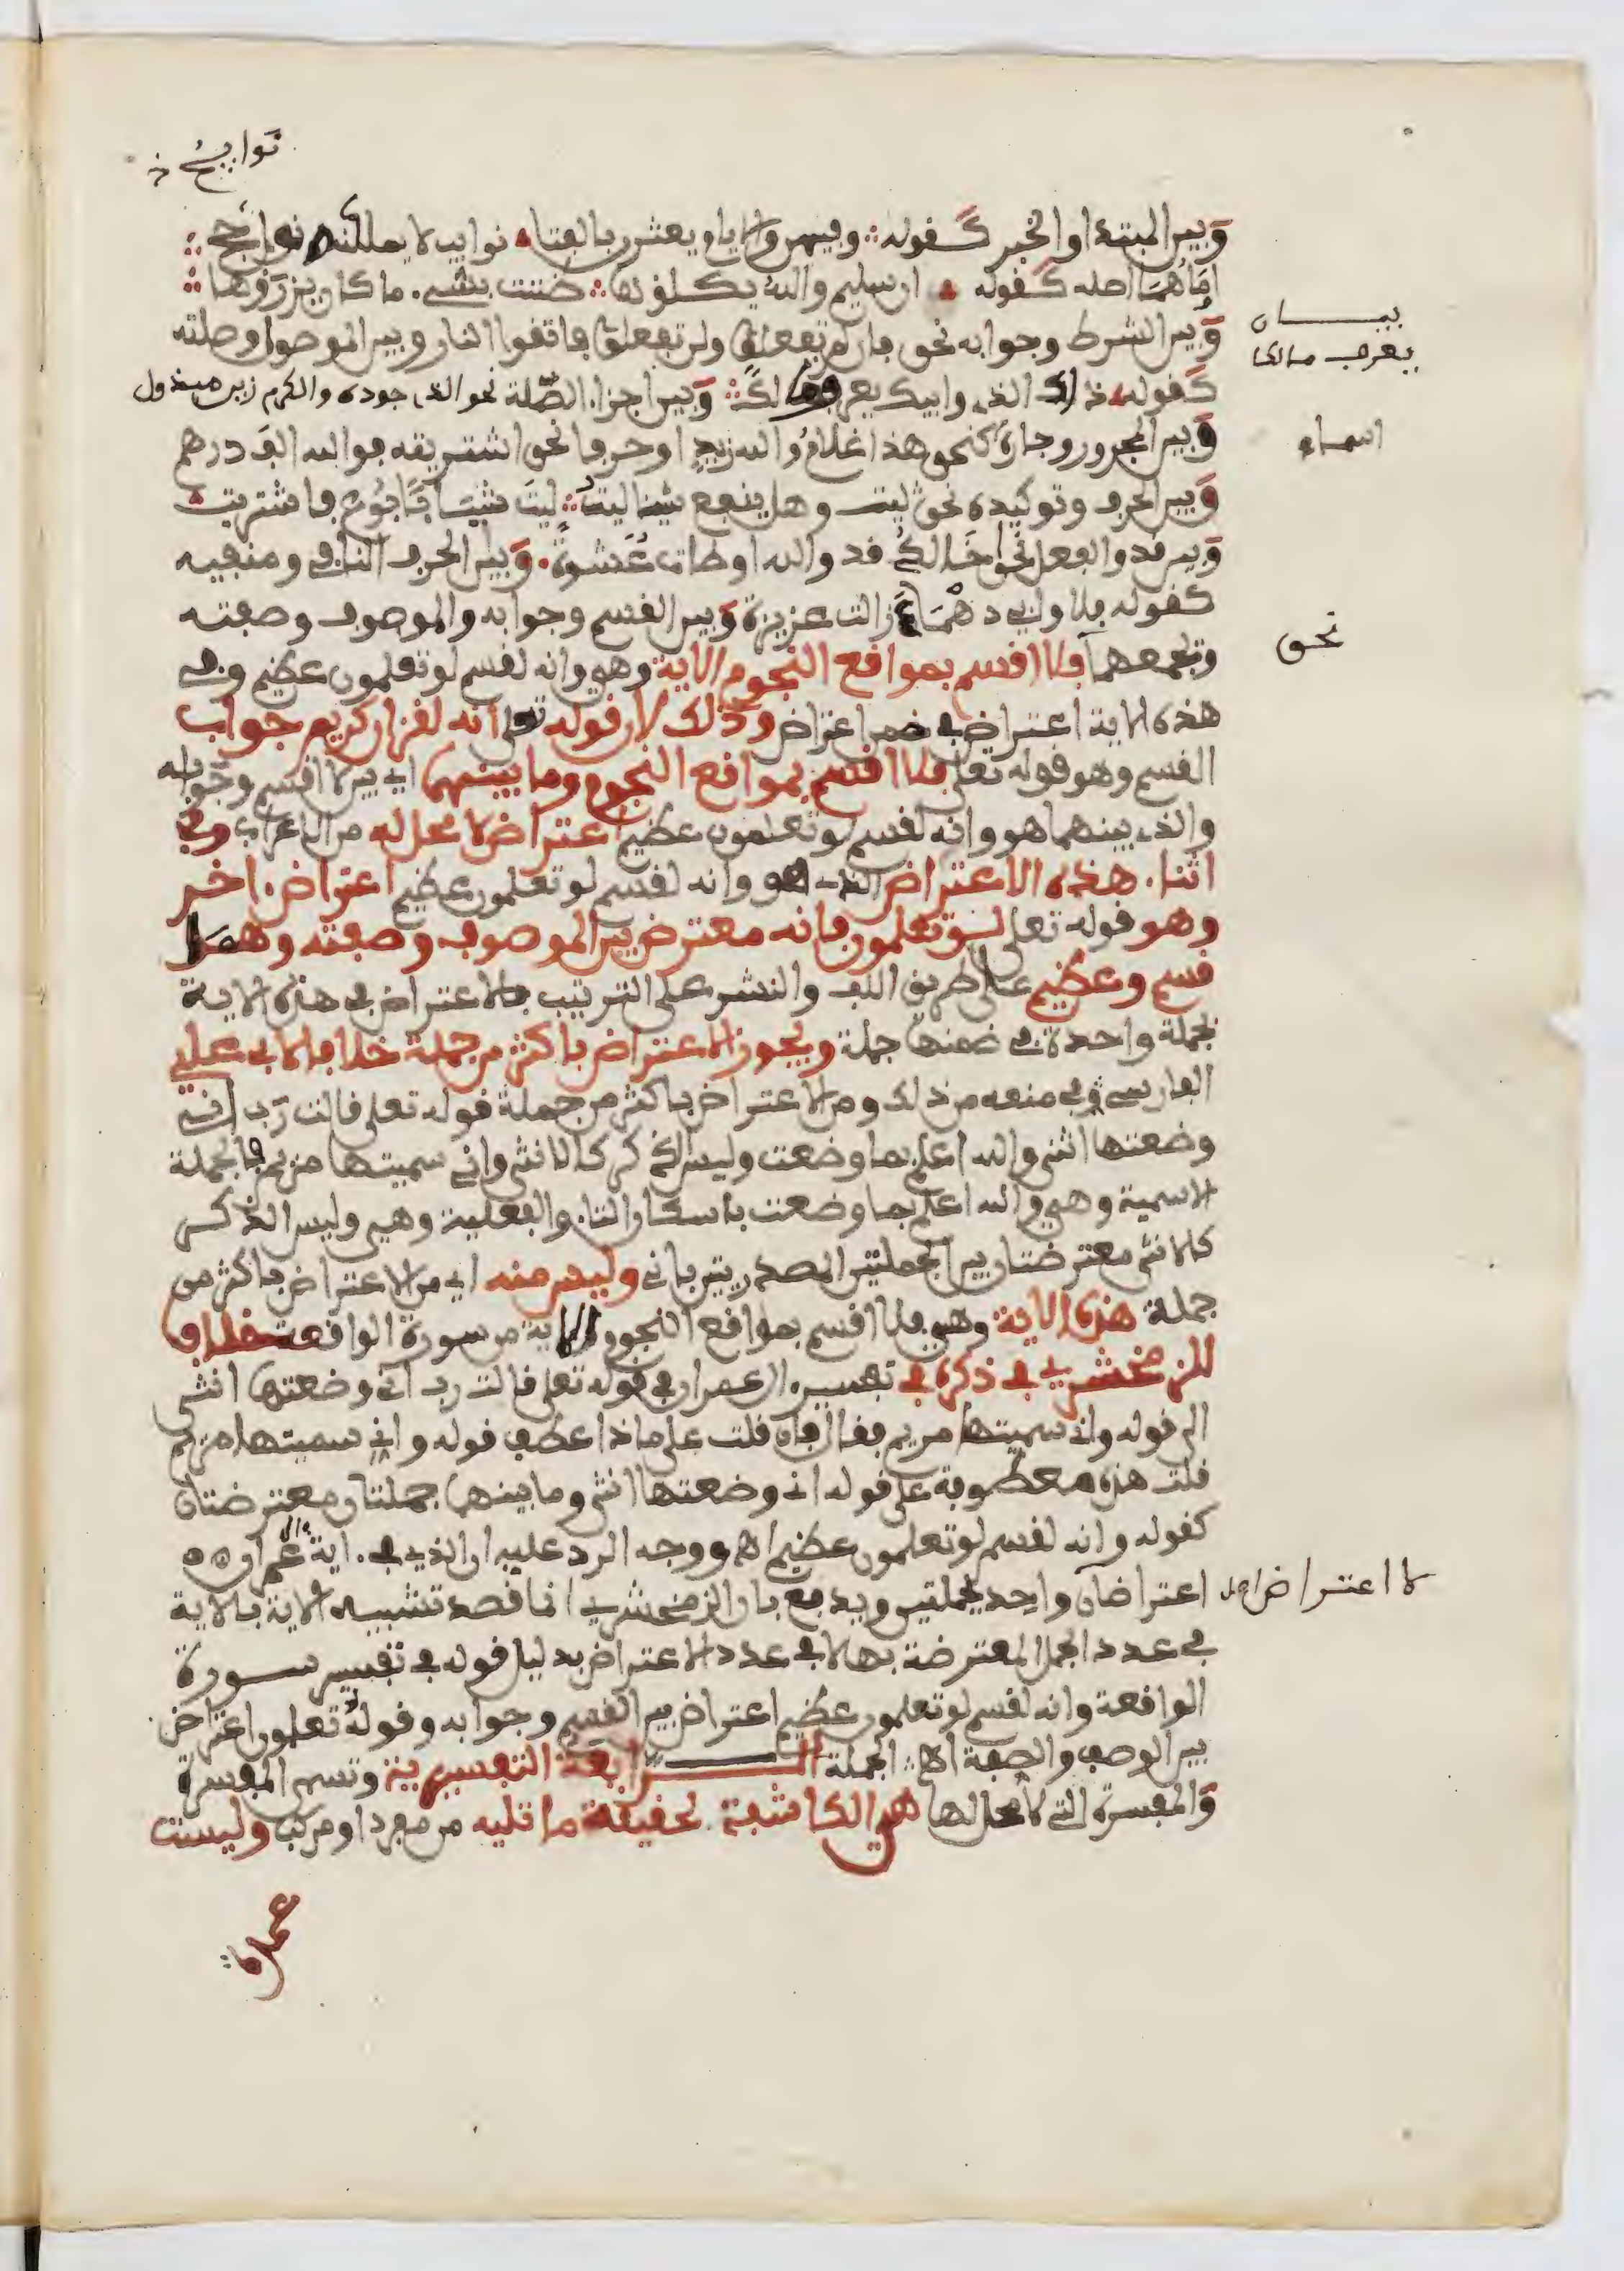 نوايح
وبين المبتدا والخبر كقوله وفيهن والايام يعثرن بالفتى نوادب لا يمللنه ونوايح
او ما هما اصله كقوله ان سليمى والله يكلؤها ضنت بشيء ما كان يرزؤها
وبين الشرط وجوابه نحو فان لم تفعلوا ولن تفعلوا فاتقوا النار وبين الموصول وصلته
بيان
يعرف مالكا
كقوله ذاك الذي وابيك يعرف مالكا وبين اجزاء الصلة نحو الذي جوده والكرم زين مبذول
وبين المجرور وجاره كنحو هذا غلام والله زيد او حرفا نحو اشتريته بوالله الف درهم
اسماء
وبين الحرف وتوكيده نحو ليت وهل ينفع شيئا ليت ليت شبابا بوع فاشتريت
وبين قد والفعل نحو اخالد قد والله اوطات عشوة وبين الحرف النافي ومنفيه
كقوله فلا وابي دهماء زالت عزيزة وبين القسم وجوابه والموصوف وصفته
نحو
ويجمعهما فلا اقسم بمواقع النجوم الاية وهي وانه لقسم لو تعلمون عظيم وفي
هذه الاية اعتراض في ضمن اعتراض وذلك لان قوله تعلى انه لقران كريم جواب
القسم وهو قوله تعلى فلا اقسم بمواقع النجوم وما بينهما اي بين لا اقسم وجوابه
والذي بينهما هو وانه لقسم لو تعلمون عظيم اعتراض لا محل له من الاعراب وفي
اثناء هذه الاعتراض الذي هو وانه لقسم لو تعلمون عظيم اعتراض اخر
وهو قوله تعلى لو تعلمون فانه معترض بين الموصوف وصفته وهما
قسم وعظيم على طريق اللف والنشر على الترتيب فالاعتراض في هذه الاية
بجملة واحدة في ضمنها جملة ويجوز الاعتراض باكثر من جملة خلافا لابي علي
الفارسي في منعه من ذلك ومن الاعتراض باكثر من جملة قوله تعلى قالت رب اني
وضعتها انثى والله اعلم بما وضعت وليس الذكر كالانثى واني سميتها مريم فالجملة
الاسمية وهي والله اعلم بما وضعت باسكان التاء والفعلية وهي وليس الذكر
كالانثى معترضتان بين الجملتين المصدريتين باني وليس منه اي من الاعتراض باكثر من
جملة هذه الاية وهي فلا اقسم بمواقع النجوم الاية من سورة الواقعة خلافا
للزمخشري في ذكره في تفسير ال عمران في قوله تعلى قالت رب اني وضعتها انثى
الى قوله واني سميتها مريم فقال فان قلت على ماذا عطف قوله واني سميتها مريم
قلت هذه معطوفة على قوله اني وضعتها انثى وما بينهما جملتان معترضتان
كقوله وانه لقسم لو تعلمون عظيم اه ووجه الرد عليه ان الذي في اية ال عمران
اعتراضان واحد بجملتين ويدفع بان الزمخشري انما قصد تشبيه الاية بالاية
لا اعتراض واحد
في عدد الجمل المعترضة بها لا في عدد الاعتراض بدليل قوله في تفسير سورة
الواقعة وانه لقسم لو تعلمون عظيم اعتراض بين القسم وجوابه وقوله لو تعلمون اعتراض
بين الوصف والصفة اه الجملة الرابعة التفسيرية وتسمى المفسرة
والمفسرة التي لا محل لها هي الكاشفة لحقيقة ما تليه من مفرد او مركب وليست
عمدة